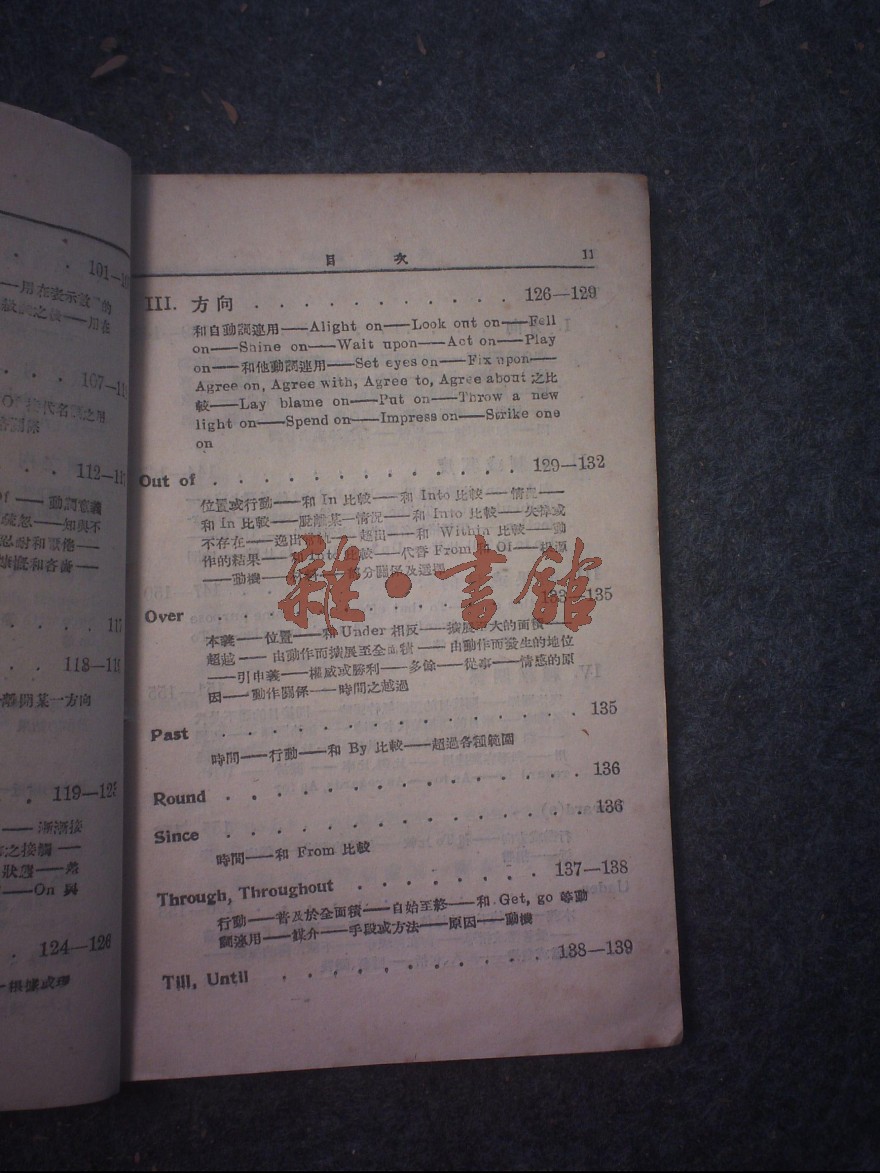 101—1
——用在表示數 的
級詞之後——用在
107—11
代名詞之用
關係
112—11
of —— 動詞意義
——知與不
忍耐和
慷慨和吝嗇——
117
118—11
離開某一方向
119—12
—— 漸漸接
之接觸 ——
狀態——
——On 與
124—126
根據或理
目 次 11
III. 方向 . . . . . . . . . . . 126—129
和自動詞連用——Alight on——Look out on——Fell
on——Shine on——Wait upon——Act on——Play
on——和他動詞連用——Set eyes on——Fix upon——
Agree on, Agree with, Agree to, Agree about 之比
較——Lay blame on——Put on——Throw a new
light on——Spend on——Impress on——Strike one
on
Out of . . . . . . . . . . . . . 129—132
位置或行動——和 In 比較——和 Into 比較——情況——
和 In 比較——脫離某一情況——和 Into 比較——失掉或
不存在——逸出常軌——超出——和 Within 比較——動
作的結果——和 Into 比較——代替 From 或 Of——根源
——動機—— 部分關係及選擇
雜·書館
Over . . . . . . . . . . . . . 133—135
本義——位置——和 Under 相反——擴展 大的面積——
超越—— 由動作而擴展至全面積—— 由動作而發生的地位
——引申義——權威或勝利——多餘——從事——情感的原
因——動作關係——時間之越過
Past . . . . . . . . . . . . . . 135
時間——行動——和 By 比較——超過各種範圍
Round . . . . . . . . . . . . . 136
Since . . . . . . . . . . . . . . 136
時間——和 From 比較
Through, Throughout . . . . . . . . 137—138
行動——普及於全面積——自始至終——和 Get, go 等動
詞連用——媒介——手段或方法——原因——動機
Till, Until . . . . . . . . . . . 138—139